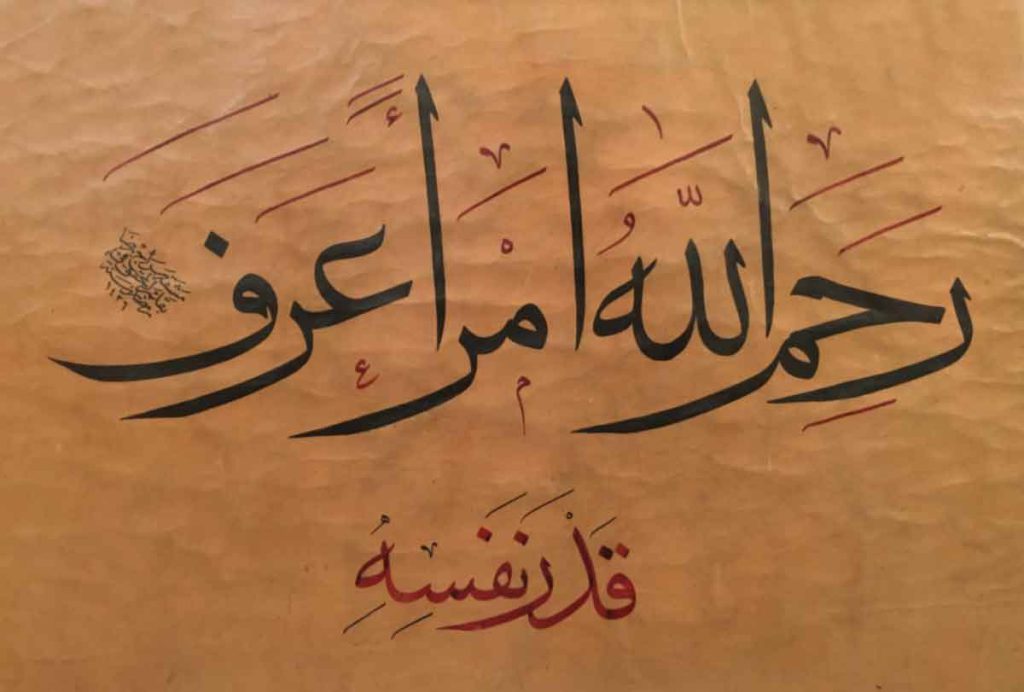 رَحِمَ اللّٰهُ امْرَأً عَرَفَ
قَدْرَ نَفْسِهِ